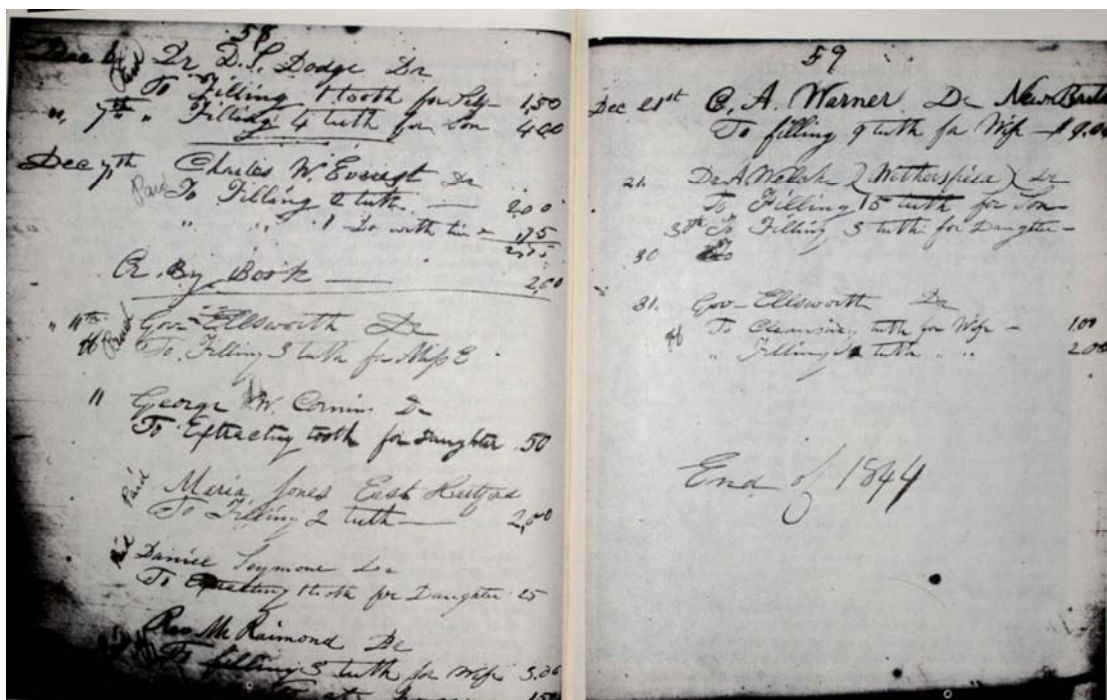 58
Dec 6 Dr D. S. Dodge Dr
Paid
To Filling 1 tooth for Self 1,50
" 7th " Filling 4 tuth for Son 4.00
Dec 7th Charles W. Everest Dr
Paid
To Filling 2 tuth — 2,00
" " 1 Do with tin " ,75
2,75
Cr. By Book — 2,00
" 11th Gov Ellsworth Dr
Paid
To Filling 3 tuth for Miss E
11 George W. Dr
To Extracting tooth for Daughter .50
Paid
Maria Jones East
To Filling 2 tuth — 2,00
Daniel Seymour Dr
To Extracting 1 tooth for Daughter 25
Rev Mr Raimond Dr
To filling 3 tuth for Wife 3.00
1,50
59
Dec 21st C. A. Warner Dr New
To filling 9 tuth for Wife — $9.00
21. Dr A Welch Dr
To Filling 15 tuth for Son —
30th To Filling 3 tuth for Daughter —
30
31. Gov Ellsworth Dr
To Cleansing tuth for Wife — 1.00
" Filling 2 tuth " " 2.00
End of 1844